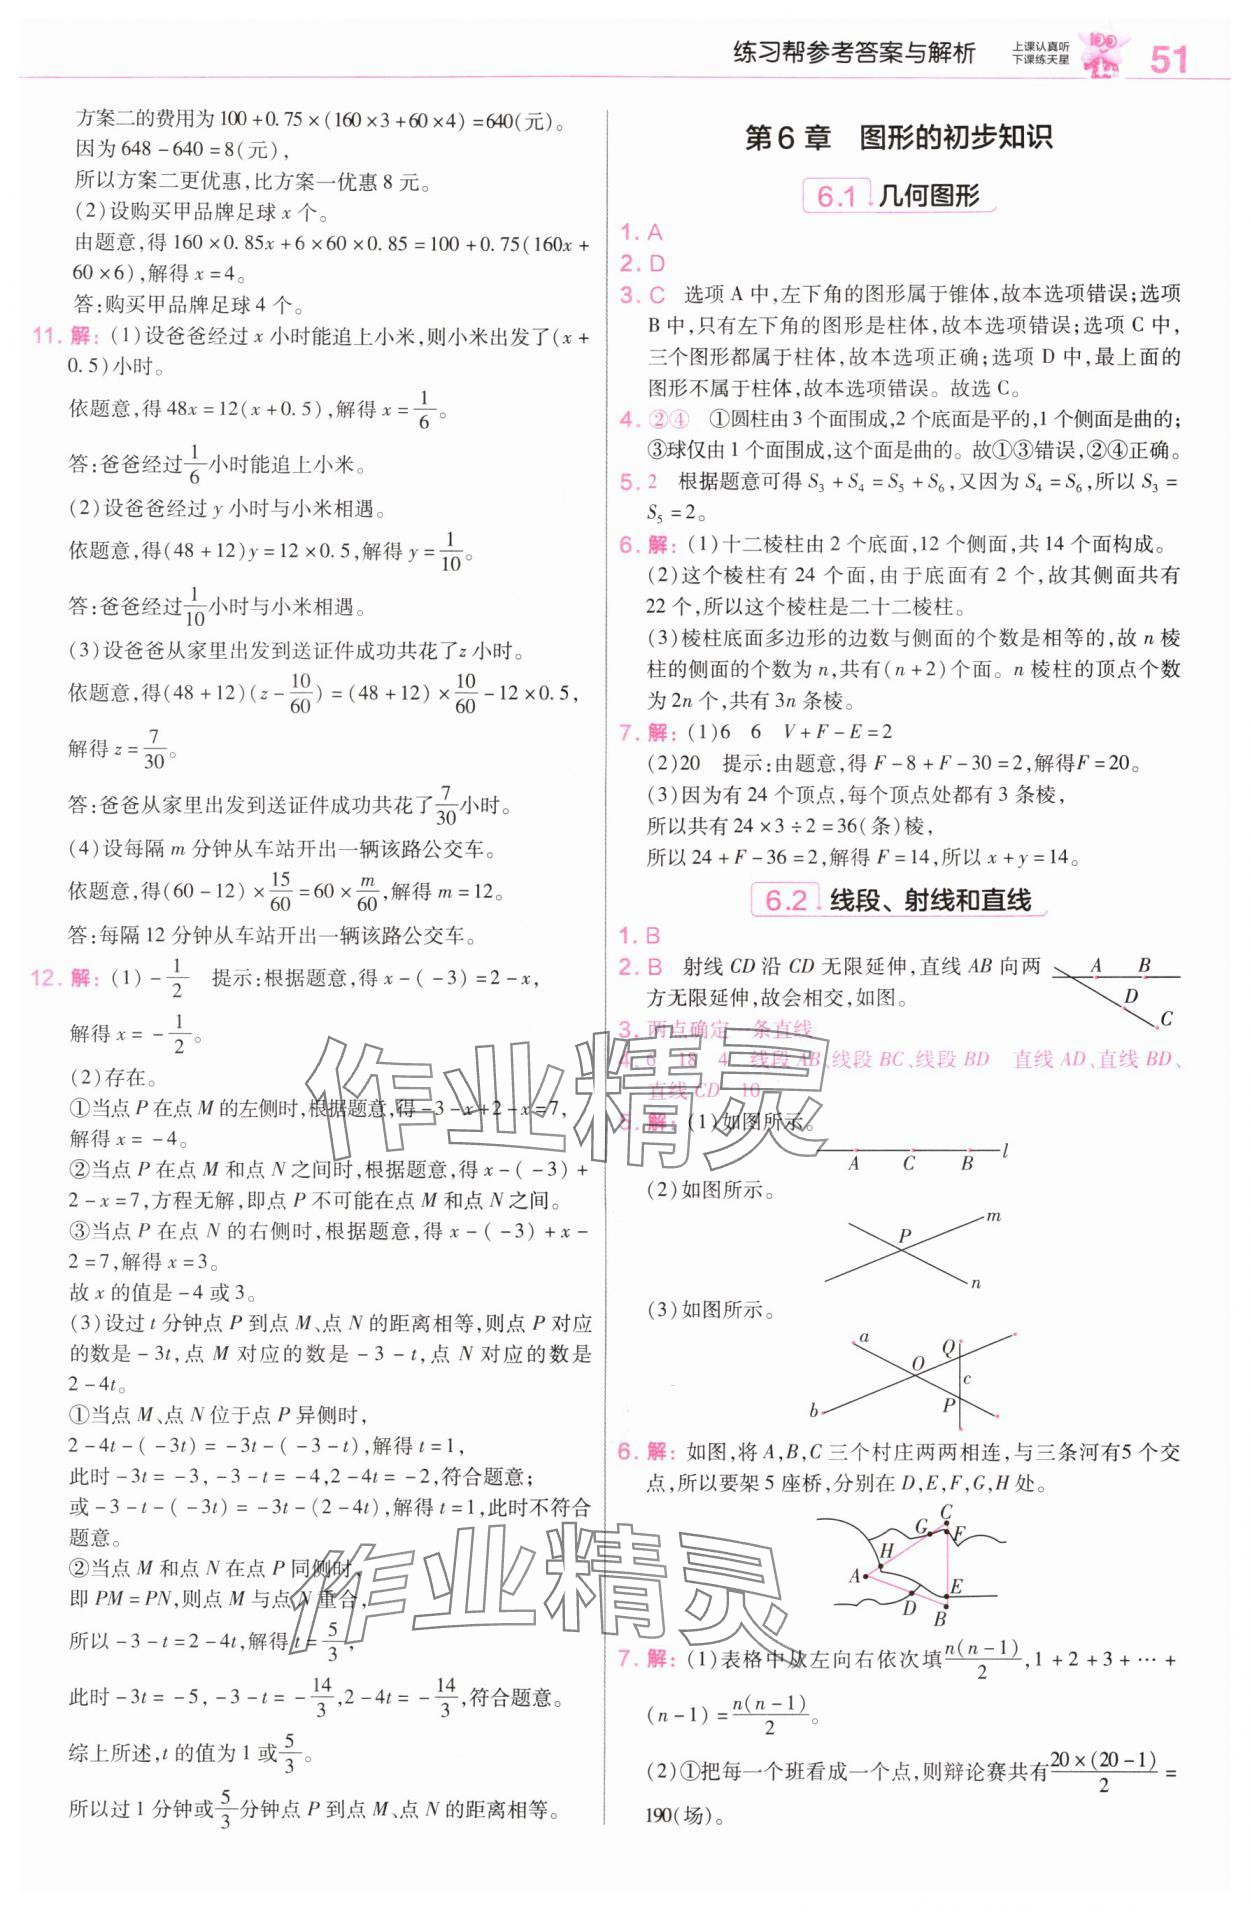 练习帮参考答案与解析
上课认真听
下课练天星
51
方案二的费用为100+0.75×(160×3+60×4)=640(元)。
因为648-640=8(元),
所以方案二更优惠,比方案一优惠8元。
(2)设购买甲品牌足球x个。
由题意,得160×0.85x+6×60×0.85=100+0.75(160x+
60×6),解得x=4。
答:购买甲品牌足球4个。
11.解:(1)设爸爸经过x小时能追上小米,则小米出发了(x+
0.5)小时。
依题意,得48x=12(x+0.5),解得x=1/6。
答:爸爸经过1/6小时能追上小米。
(2)设爸爸经过y小时与小米相遇。
依题意,得(48+12)y=12×0.5,解得y=1/10。
答:爸爸经过1/10小时与小米相遇。
(3)设爸爸从家里出发到送证件成功共花了z小时。
依题意,得(48+12)(z-10/60)=(48+12)×10/60-12×0.5,
解得z=7/30。
答:爸爸从家里出发到送证件成功共花了7/30小时。
(4)设每隔m分钟从车站开出一辆该路公交车。
依题意,得(60-12)×15/60=60×m/60,解得m=12。
答:每隔12分钟从车站开出一辆该路公交车。
12.解:(1)-1/2 提示:根据题意,得x-(-3)=2-x,
解得x=-1/2。
(2)存在。
①当点P在点M的左侧时,根据题意,得-3-x+2-x=7,
解得x=-4。
②当点P在点M和点N之间时,根据题意,得x-(-3)+
2-x=7,方程无解,即点P不可能在点M和点N之间。
③当点P在点N的右侧时,根据题意,得x-(-3)+x-
2=7,解得x=3。
故x的值是-4或3。
(3)设过t分钟点P到点M、点N的距离相等,则点P对应
的数是-3t,点M对应的数是-3-t,点N对应的数是
2-4t。
①当点M、点N位于点P异侧时,
2-4t-(-3t)=-3t-(-3-t),解得t=1,
此时-3t=-3,-3-t=-4,2-4t=-2,符合题意;
或-3-t-(-3t)=-3t-(2-4t),解得t=1,此时不符合
题意。
②当点M和点N在点P同侧时,
即PM=PN,则点M与点N重合,
所以-3-t=2-4t,解得t=5/3,
此时-3t=-5,-3-t=-14/3,2-4t=-14/3,符合题意。
综上所述,t的值为1或5/3。
所以过1分钟或5/3分钟点P到点M、点N的距离相等。
第6章 图形的初步知识
6.1 几何图形
1.A
2.D
3.C 选项A中,左下角的图形属于锥体,故本选项错误;选项
B中,只有左下角的图形是柱体,故本选项错误;选项C中,
三个图形都属于柱体,故本选项正确;选项D中,最上面的
图形不属于柱体,故本选项错误。故选C。
4.②④ ①圆柱由3个面围成,2个底面是平的,1个侧面是曲的;
③球仅由1个面围成,这个面是曲的。故①③错误,②④正确。
5.2 根据题意可得S₃+S₄=S₅+S₆,又因为S₄=S₆,所以S₃=
S₅=2。
6.解:(1)十二棱柱由2个底面,12个侧面,共14个面构成。
(2)这个棱柱有24个面,由于底面有2个,故其侧面共有
22个,所以这个棱柱是二十二棱柱。
(3)棱柱底面多边形的边数与侧面的个数是相等的,故n棱
柱的侧面的个数为n,共有(n+2)个面。n棱柱的顶点个数
为2n个,共有3n条棱。
7.解:(1)6 6 V+F-E=2
(2)20 提示:由题意,得F-8+F-30=2,解得F=20。
(3)因为有24个顶点,每个顶点处都有3条棱,
所以共有24×3÷2=36(条)棱,
所以24+F-36=2,解得F=14,所以x+y=14。
6.2 线段、射线和直线
1.B
2.B 射线CD沿CD无限延伸,直线AB向两
方无限延伸,故会相交,如图。
A B
D
C
3.两点确定一条直线
4.6 18 4 线段AB、线段BC、线段BD 直线AD、直线BD、
直线CD 10
5.解:(1)如图所示。
A C B l
(2)如图所示。
P m
n
(3)如图所示。
a Q
O c
b P
6.解:如图,将A,B,C三个村庄两两相连,与三条河有5个交
点,所以要架5座桥,分别在D,E,F,G,H处。
C
G F
H
A
D E
B
7.解:(1)表格中从左向右依次填n(n-1)/2,1+2+3+⋯+
(n-1)=n(n-1)/2。
(2)①把每一个班看成一个点,则辩论赛共有20×(20-1)/2=
190(场)。
作业精灵
作业精灵